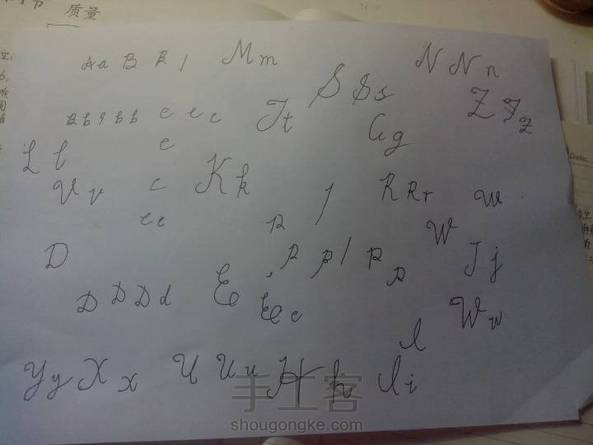 质量
A a B R l M m N N n
S S s Z Z z
B b q b b e e c T t G g
L l e
V v c K k l R R r w
e e p W
D p p l p p J j
D D D d E E e W w
l
Y y X x U U u H h I i
手工客
shougongke.com
Date